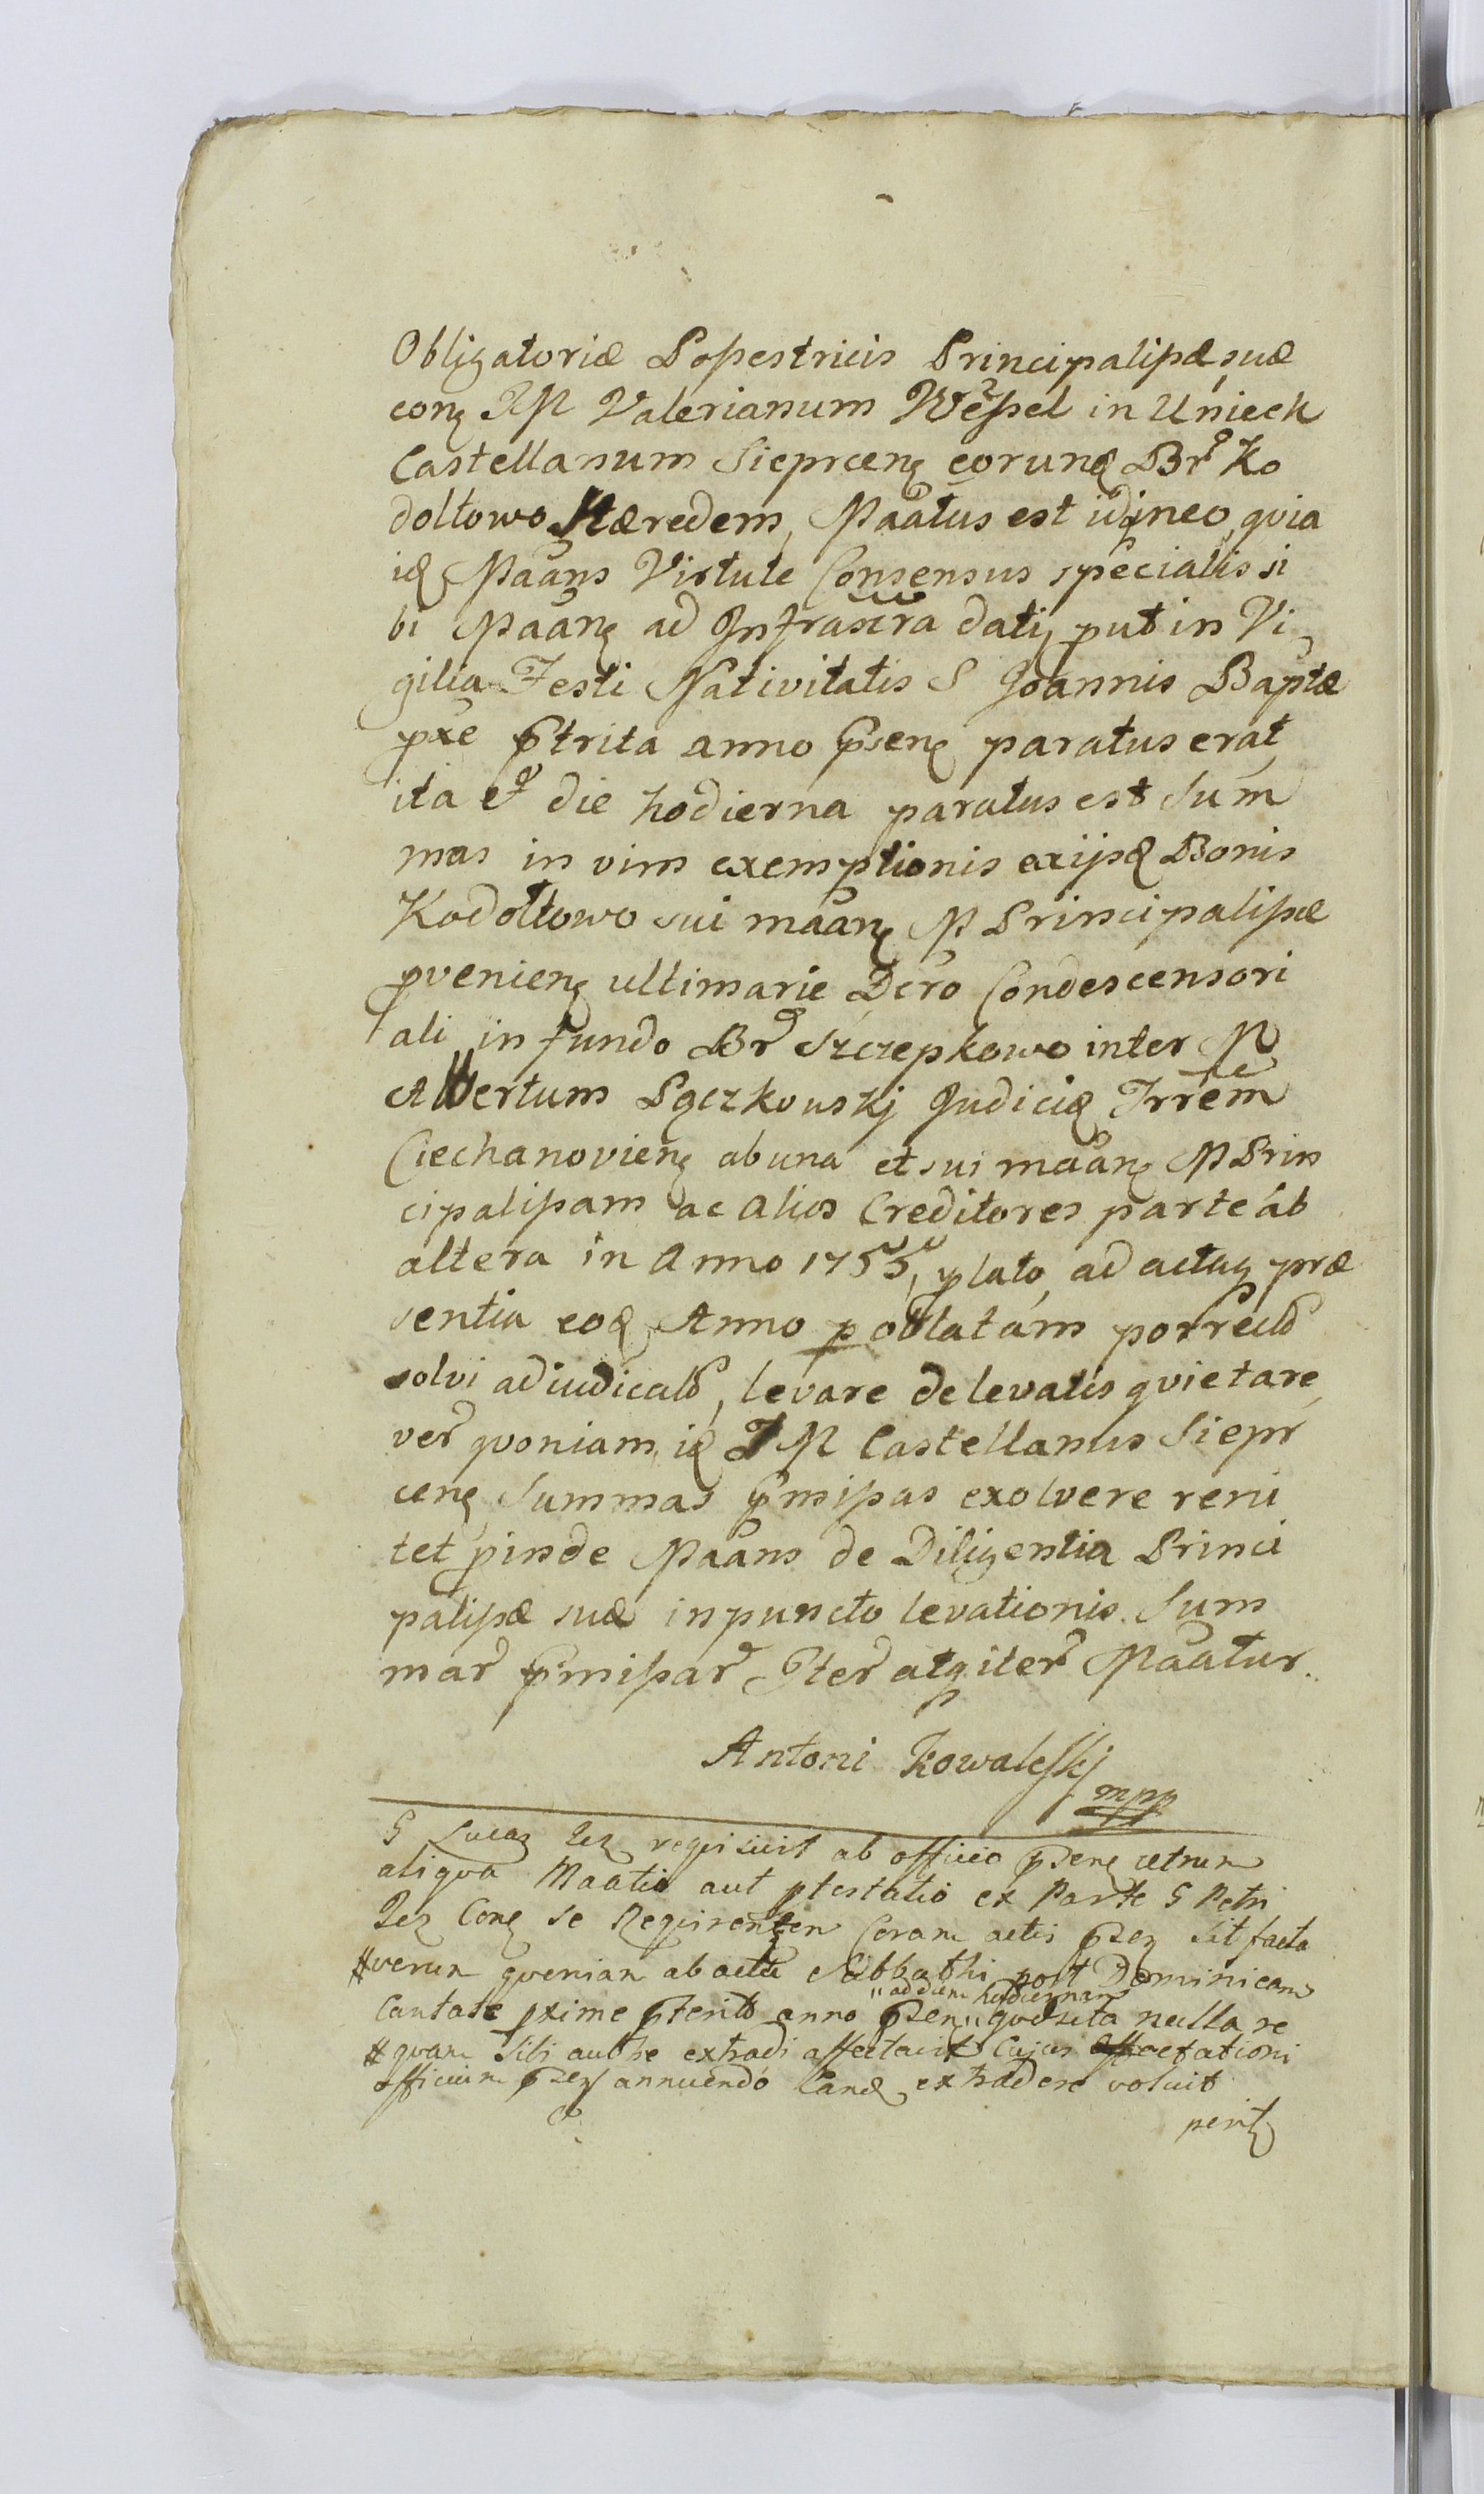 Obligatoriæ Possestricis Principalissæ suæ
con͂ JM Valerianum Wessel in Unieck
Castellanum Sieprcen͂ eorund͂ Br͂ Ko
doltowo Hæredem, Maãtus est idq̃ ineo, qvia
id͂ Maãns Virtute Consensus specialis si
bi Maãn͂ ad Infrascr̃a dati, put in Vi
gilia Festi Nativitatis S Joannis Bap̃tæ
pxe p̃trita anno p̃sen͂ paratus erat
ita et die hodierna paratus est Sum
mas in vim exemptionis exijsd͂ Bonis
Kodoltowo sui maãn͂ M Principalissæ
pvenien͂ ultimarie Dc̃ro Condescensori
ali in fundo Br͂ Szczepkowo inter M
Albertum Pączkouskj Judicią Trr̃em
Ciechanovien͂ ab una et sui maãn͂ M Prin
cipalissam ac alios Creditores parte áb
altera in Anno 1755, plato, ad actaq præ
sentia eod͂ Anno p oblatam porrecto
solvi adiudicato, levare de levatis qvietare
ver͂ qvoniam id͂ JM Castellanus Siepr
cen͂ Summas p̃missas exolvere reni
tet pinde Maãns de Diligentia Princi
palissæ suæ in puncto levationis Sum
mar͂ p̃missar͂ Iter͂ atq iter͂ Maãtur.
Antoni Kowalesskj
mpp
G Lucas Lez reqvisivit ab officio p̃sen͂ utrum
aliqva Maatio aut ptestatio ex Parte G Petri
Lez Con͂ se Reqvirentem Coram actis p̃sen͂ sit facta
#verum qveniam ab actu Sabbathi post Dominicam
"ad diem hodiernam
Cantate pxime p̃terito anno p̃sen͂ " qvæsita nulla re
#qvam sibi authe extradi affectavit Cujus affectationi
officium p̃sen͂ annuendo Eand͂ extradere voluit
perit͂